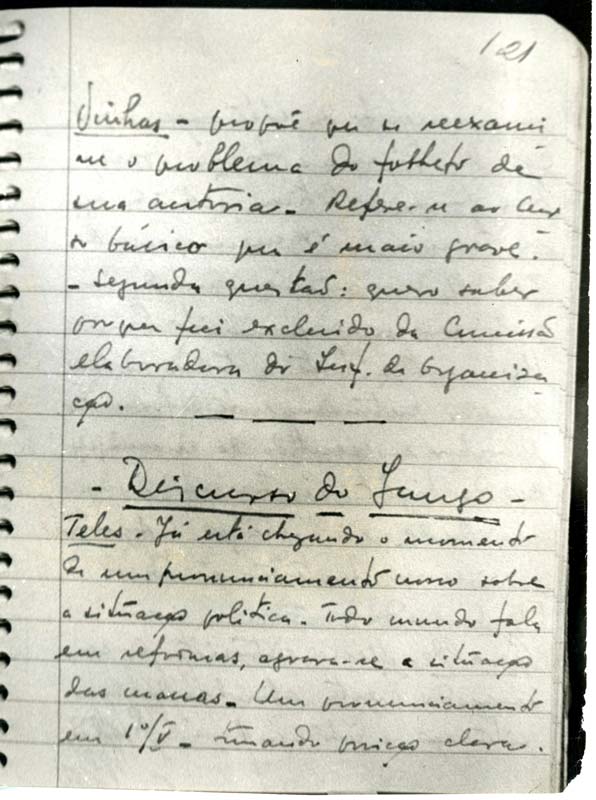 121
Vinhas - propõe que se reexami
ne o problema do folheto de
sua autoria - Refere-se ao Cur
so básico que é mais grave.
- Segunda questão: quero saber
porque fui excluido da Comissão
elaboradora do Inf. de Organiza
ção.
- Discurso do Jango -
Teles - Já está chegando o momento
de um pronunciamento nosso sobre
a situação política. Todo mundo fala
em reformas, agrava-se a situação
das massas. Um pronunciamento
em 1º/V - tomando posição clara.